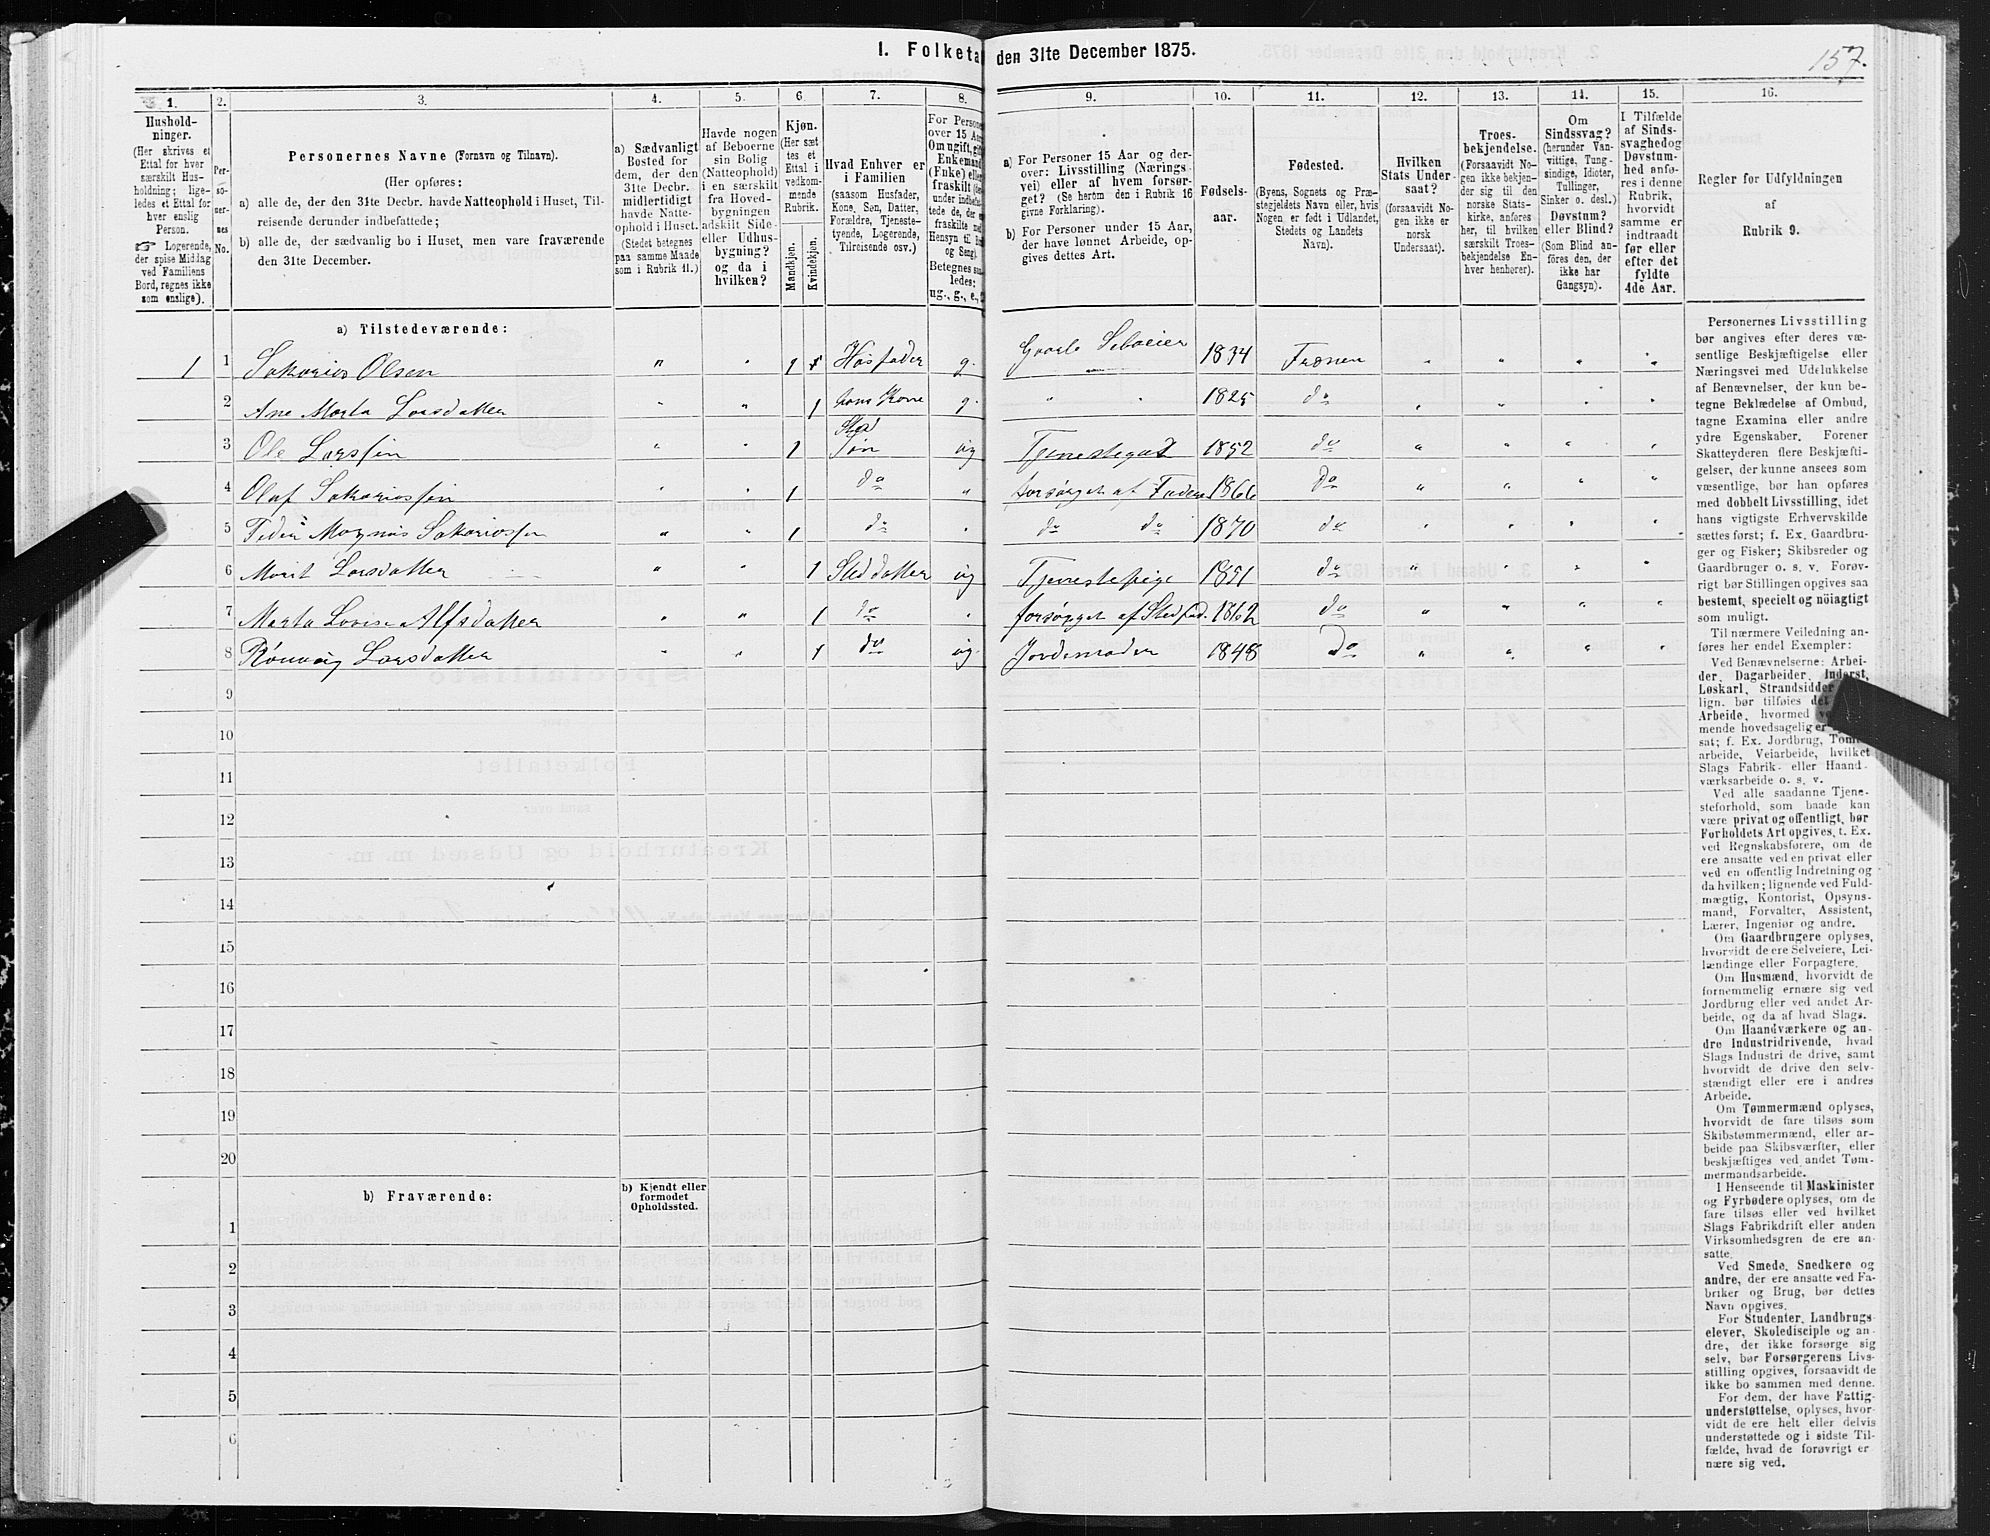 I. Folketa den 31te December 1875.
157.
1. 2. 3. 4. 5. 6 7. 8. 9. 10. 11. 12. 13. 14. 15. 16.
Hushold-
ninger.
(Her skrives et
Ettal for hver
særskilt Hus-
holdning; lige-
ledes et Ettal for
hver enslig
Person.
☞ Logerende,
der spise Middag
ved Familiens
Bord, regnes ikke
som enslige).
Per-
so-
ner-
nes
No.
Personernes Navne (Fornavn og Tilnavn).
(Her opføres:
a) alle de, der den 31te Decbr. havde Natteophold i Huset, Til-
reisende derunder indbefattede;
b) alle de, der sædvanlig bo i Huset, men vare fraværende
den 31te December.
a) Sædvanligt
Bosted for
dem, der den
31te Decbr.
midlertidigt
havde Natte-
ophold i Huset.
(Stedet betegnes
paa samme Maade
som i Rubrik 11.)
Havde nogen
af Beboerne
sin Bolig
(Natteophold)
i en særskilt
fra Hoved-
bygningen
adskilt Side-
eller Udhus-
bygning?
og da i
hvilken?
Kjøn.
(Her sæt
tes et
Ettal i
vedkom-
mende
Rubrik.
Mandkjøn.
Kvindekjøn.
Hvad Enhver er
i Familien
(saasom Husfader,
Kone, Søn, Datter,
Forældre, Tjeneste-
tyende, Logerende,
Tilreisende osv.)
For Persone
over 15 Aa
Om ugift, gif
Enkemand
(Enke) elle
fraskilt
Betegnes saa
ledes:
ug., g., e.,
a) For Personer 15 Aar og der-
over: Livsstilling (Nærings-
vei) eller af hvem forsør-
get? (Se herom den i Rubrik 16
givne Forklaring).
b) For Personer under 15 Aar,
der have lønnet Arbeide, op-
gives dettes Art.
Fødsels-
aar.
Fødested.
(Byens, Sognets og Præ-
stegjeldets Navn eller, hvis
Nogen er født i Udlandet,
Stedets og Landets
Navn).
Hvilken
Stats Under-
saat?
(forsaavidt No-
gen ikke er
norsk
Undersaat).
Troes-
bekjendelse.
(Forsaavidt No-
gen ikke bekjen-
der sig til den
norske Stats-
kirke, anføres
her, til hvilken
særskilt Troes-
bekjendelse En-
hver henhører).
Om
Sindssvag?
(herunder Van-
vittige, Tung-
sindige, Idioter,
Tullinger,
Sinker o. desl.)
Døvstum?
eller Blind?
(Som Blind an-
føres den, der
ikke har
Gangsyn).
I Tilfælde
af Sinds-
svaghed og
Døvstum-
hed anfø-
res i denne
Rubrik,
hvorvidt
samme er
indtraadt
før eller
efter det
fyldte
4de Aar.
Regler for Udfyldningen
af
Rubrik 9.
a) Tilstedeværende:
1 1 Sakarias Olsen " " 1 Husfader g. Gaards Selveier 1834 Frænen " " " "
2 Ane Marta Larsdatter " " 1 hans Kone g. " " 1825 do " " " "
3 Ole Larssen " " 1 Sted Søn ug Tjenestegut 1852 do " " " "
4 Olaf Sakariassen " " 1 do " forsørget af Faderen 1866 Do " " " "
5 Peder Magnus Sakariassen " " 1 do " do do 1870 do " " " "
6 Marit Larsdatter " " 1 Sted datter ug Tjenestepige 1851 do " " " "
7 Marta Lovise Alfsdatter " " 1 do " forsørget af Stedfad. 1862 do " " " "
8 Rønnvig Larsdatter " " 1 do ug. Jordemoder 1848 Do " " " "
9
10
11
12
13
14
15
16
17
18
19
20
b) Fraværende:
b) Kjendt eller
formodet
Opholdssted.
1
2
3
4
5
6
Personernes Livsstilling
bør angives efter deres væ-
sentlige Beskjæftigelse eller
Næringsvei med Udelukkelse
af Benævnelser, der kun be-
tegne Beklædelse af Ombud,
tagne Examina eller andre
ydre Egenskaber. Forener
Skatteyderen flere Beskjæfti-
gelser, der kunne ansees som
væsentlige, bør han opføres
med dobbelt Livsstilling, idet
hans vigtigste Erhvervskilde
sættes først; f. Ex. Gaardbru-
ger og Fisker; Skibsreder og
Gaardbruger o. s. v. Forøv-
rigt bør Stillingen opgives saa
bestemt, specielt og nöiagtigt
som muligt.
Til nærmere Veiledning an-
føres her endel Exempler:
Ved Benævnelserne: Arbei-
der, Dagarbeider, Inderst,
Løskarl, Strandsidder
lign. bør tilføies det
Arbeide, hvormed
mende hovedsagelig er
sat; f. Ex. Jordbrug, Tømm
arbeide, Veiarbeide, hvilket
Slags Fabrik- eller Haand-
værksarbeide o. s. v.
Ved alle saadanne Tjene-
steforhold, som baade kan
være privat og offentligt, bør
Forholdets Art opgives, t. Ex.
ved Regnskabsførere, om de
ere ansatte ved en privat eller
ved en offentlig Indretning og
da hvilken; lignende ved Fuld-
mægtig, Kontorist, Opsyns-
mand, Forvalter, Assistent,
Lærer, Ingeniør og andre.
Om Gaardbrugere oplyses,
hvorvidt de ere Selveiere, Lei-
lændinge eller Forpagtere.
Om Husmænd, hvorvidt de
fornemmelig ernære sig ved
Jordbrug eller ved andet Ar-
beide, og da af hvad Slags.
Om Haandværkere og an-
dre Industridrivende, hvad
Slags Industri de drive, samt
hvorvidt de drive den selv-
stændigt eller ere i andres
Arbeide.
Om Tømmermænd oplyses,
hvorvidt de fare tilsøs som
Skibstømmermænd, eller ar-
beide paa Skibsværfter, eller
beskjæftiges ved andet Tøm-
mermandsarbeide.
I Henseende til Maskinister
og Fyrbødere oplyses, om de
fare tilsøs eller ved hvilket
Slags Fabrikdrift eller anden
Virksomhedsgren de ere an-
satte.
Ved Smede, Snedkere og
andre, der ere ansatte ved Fa-
briker og Brug, bør dettes
Navn opgives.
For Studenter, Landbrugs-
elever, Skoledisciple og an-
dre, der ikke forsørge sig
selv, bør Forsørgerens Livs-
stilling opgives, forsaavidt de
ikke bo sammen med denne.
For dem, der have Fattig-
understøttelse, oplyses, hvor-
vidt de ere helt eller delvis
understøttede og i sidste Til-
fælde, hvad de forøvrigt er-
nære sig ved.